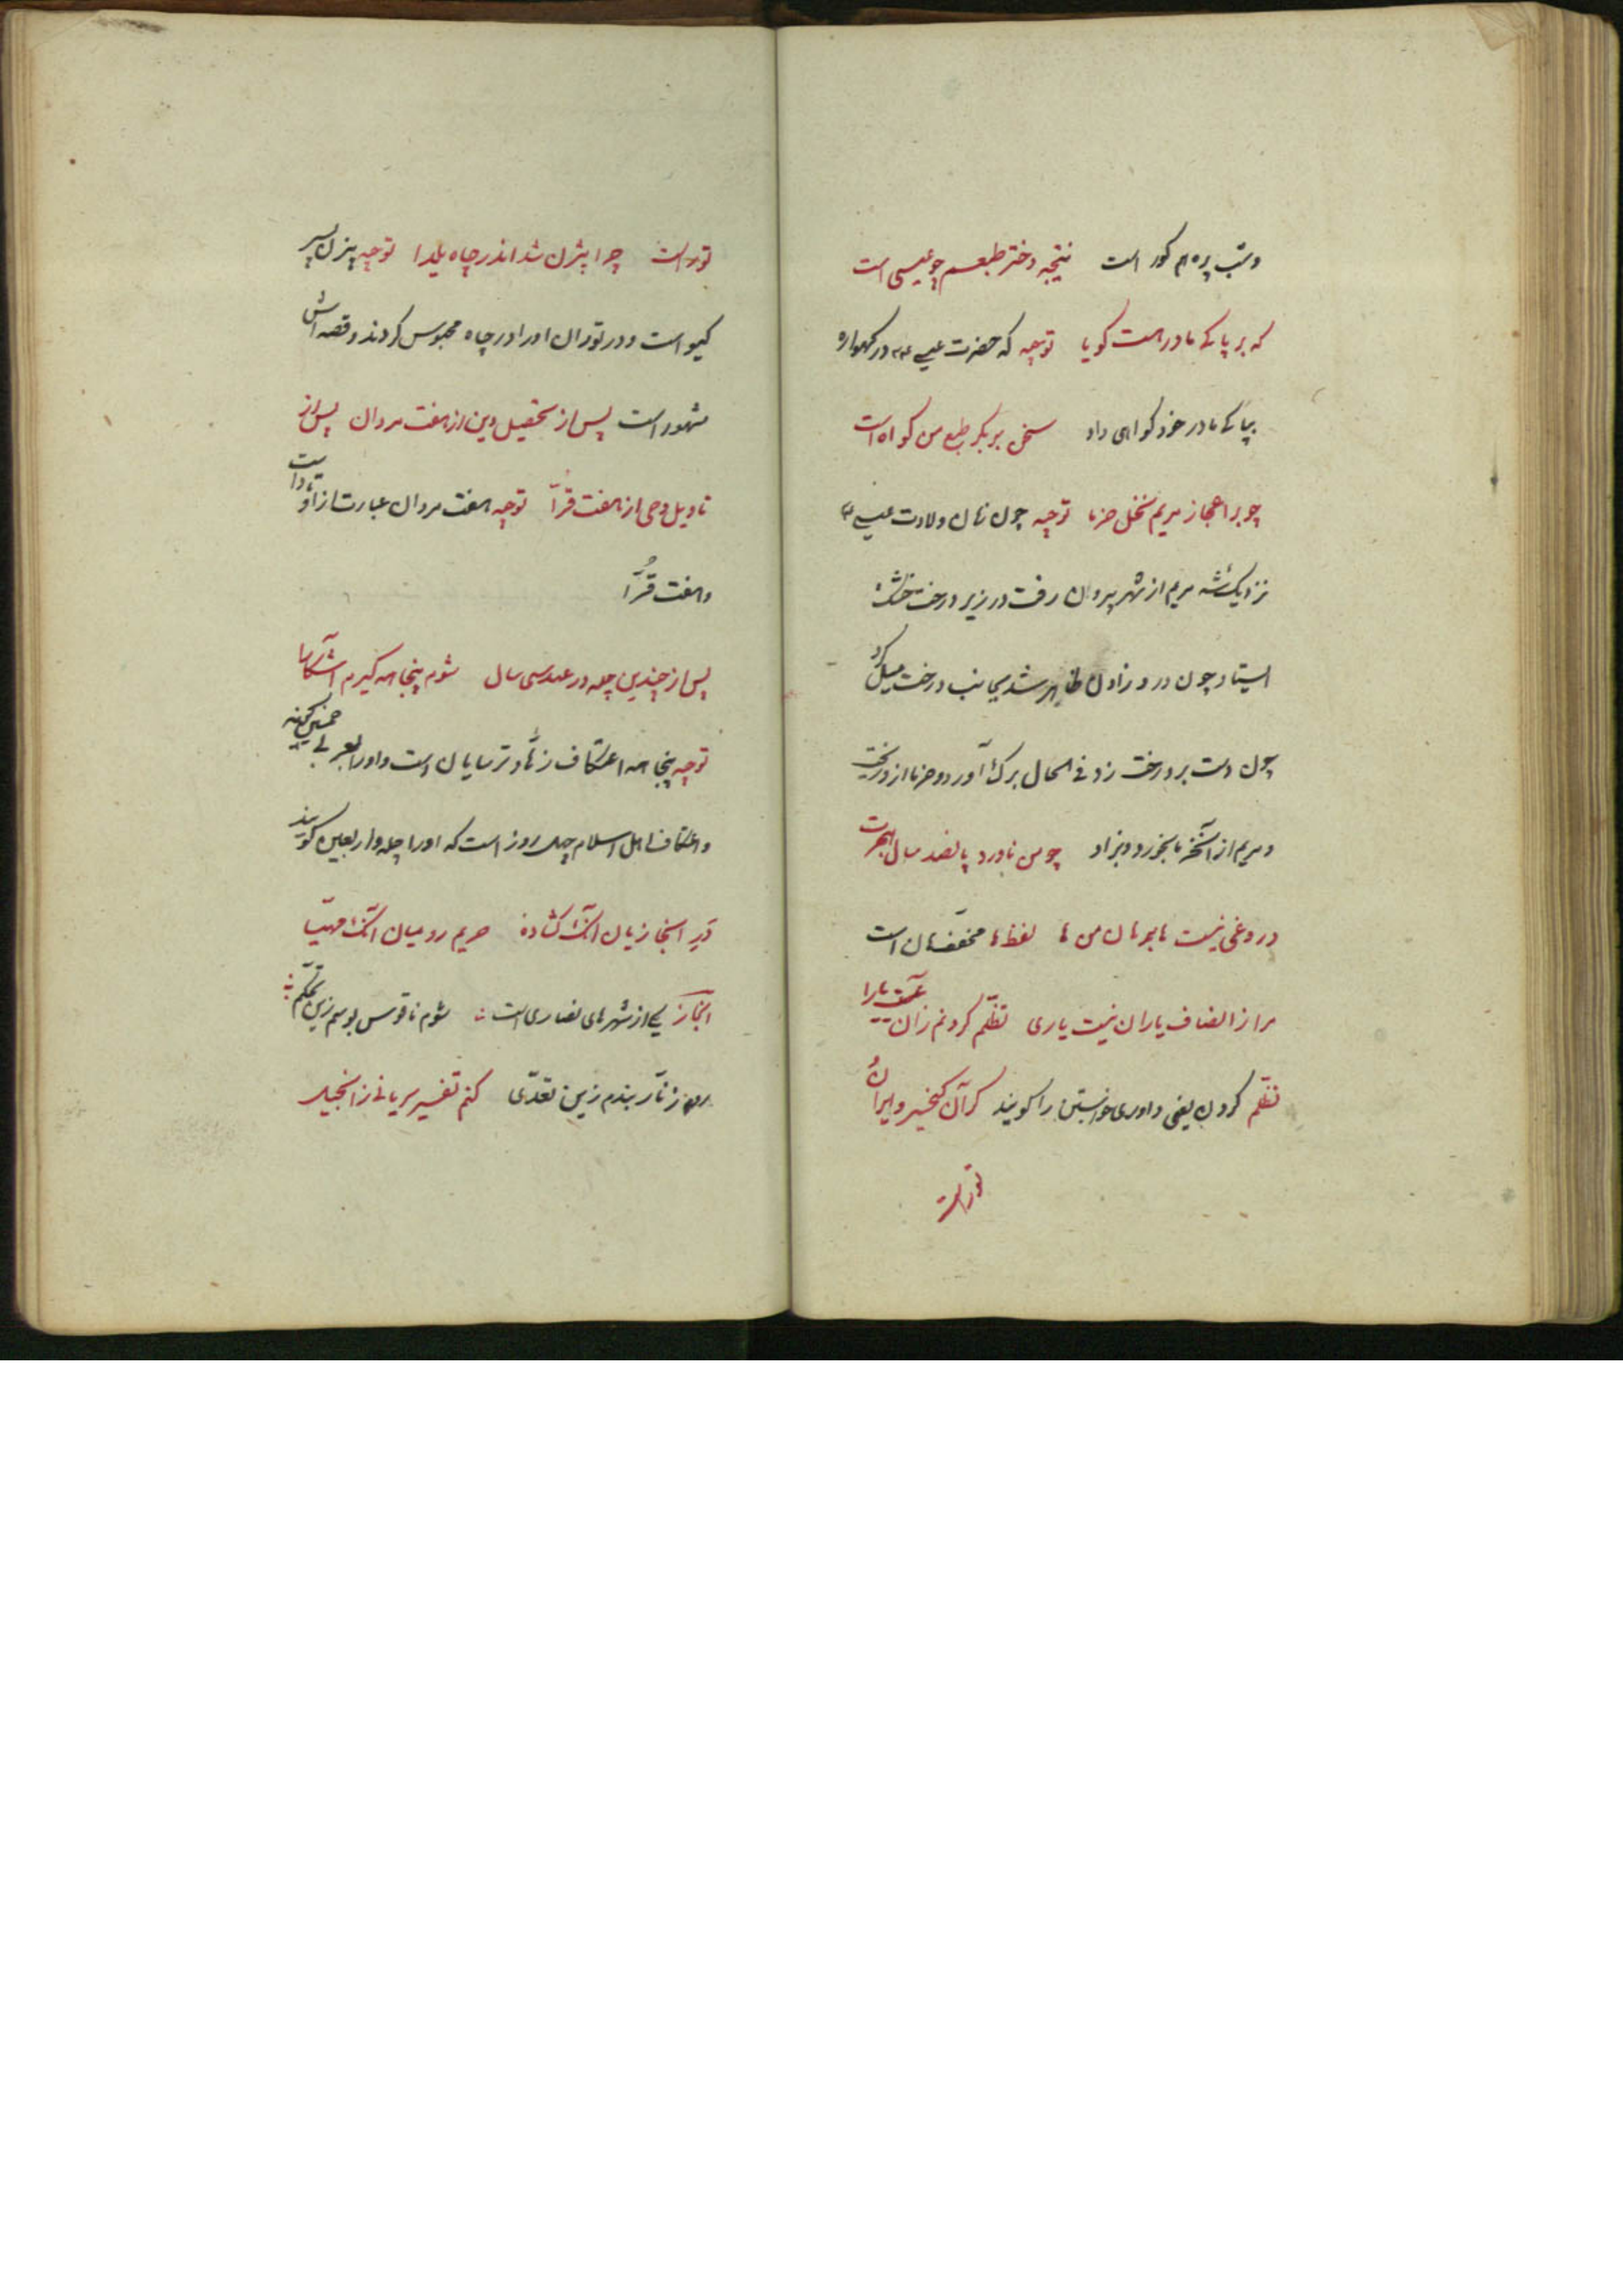 وشب پره هم کور است نتیجه دختر طبعم چو عیسی است
که بر پاکی مادر هست کویا توجیه که حضرت عیسی ۴ در کهواره
بپاکی مادر خود کواهی داد سخن بر بکر طبع من کواه است
چو بر اعجاز مریم نخل خرما توجیه چون زمان ولادت عیسی ۴
نزدیک شد مریم از شهر بیرون رفت در زیر درخت خشک
ایستاد چون درد زادن ظاهر شد بجانب درخت میل کرد
چون دست بر درخت زد فی الحال برک آورد و خرما ازو ریخت
و مریم از آنخرما بخورد و بزاد چو من ناورد پانصد سال هجرت
دروغی نیست ها برهان من ها لفظ ها مخفف هان است
مرا از انصاف یاران نیست یاری تظلم کردنم زان نیست یارا
تظلم کردن یعنی داوری خواستن را کویند کر آن کیخسرو ایران
توراست
توراست چرا بیژن شد اندر چاه یلدا توجیه بیژن پسر
کیو است و در توران او را در چاه محبوس کردند و قصه اش
مشهور است پس از تحصیل دین از هفت مردان پس از
تاویل وحی از هفت قرّا توجیه هفت مردان عبارت از اوتاد است
و هفت قُرّا
پس از چندین چله در عهد سی سال شوم پنجاهه کیرم آشکارا
توجیه پنجاهه اعتکاف زهّاد ترسایان است و او را بعربی خمسین کویند
و اعتکاف اهل اسلام چهل روز است که او را چله و اربعین کویند
دَیر ابخازیان انک کشاده حریم رومیان انک مهیّا
ابخاز یکی از شهرهای نصاری است شوم ناقوس بوسم زین تحکّم
روم زنّار بندم زین تعدّی کنم تفسیر سریانی ز انجیل